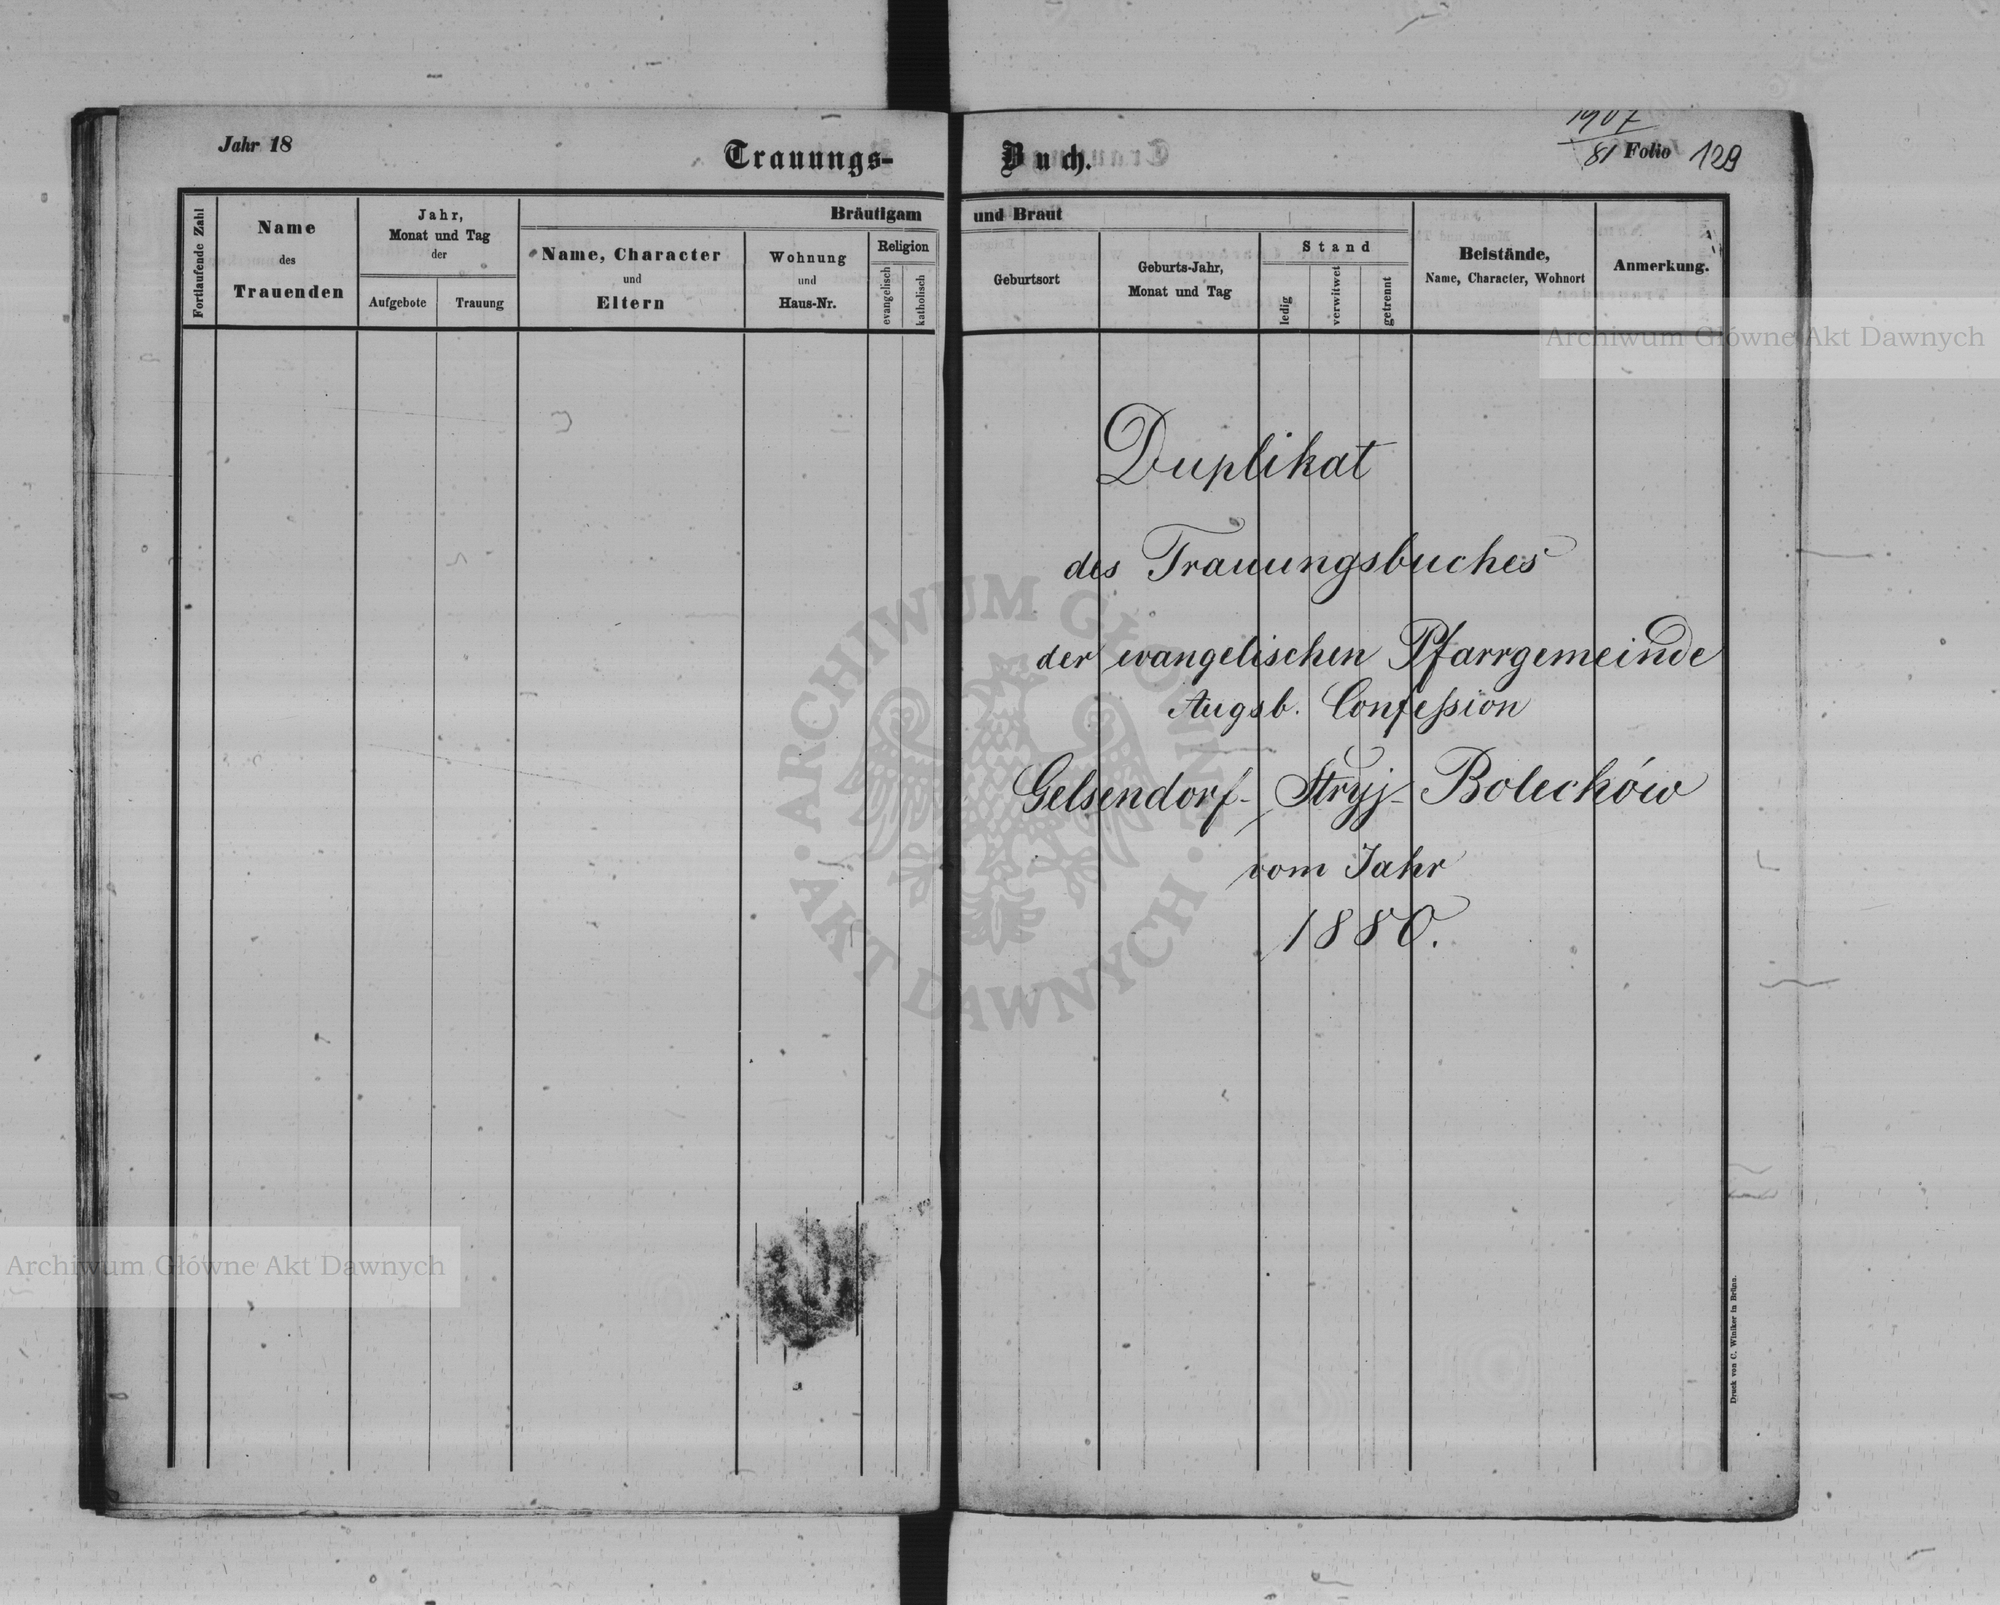 Jahr 18
Trauungs-
Buch.
1907
81 Folio 129
Fortlaufende Zahl
Name
des
Trauenden
Jahr,
Monat und Tag
der
Aufgebote
Trauung
Bräutigam
Name, Character
und
Eltern
Wohnung
und
Haus-Nr.
Religion
evangelisch
katholisch
und Braut
Geburtsort
Geburts-Jahr,
Monat und Tag
Stand
ledig
verwitwet
getrennt
Beistände,
Name, Character, Wohnort
Anmerkung.
Archiwum Główne Akt Dawnych
Duplikat
des Trauungsbuches
der evangelischen Pfarrgemeinde
Augsb. Confession
Gelsendorf - Stryj - Bolechów
vom Jahr
1880.
ARCHIWUM GŁÓWNE
AKT DAWNYCH
Archiwum Główne Akt Dawnych
Druck von C. Winiker in Brünn.